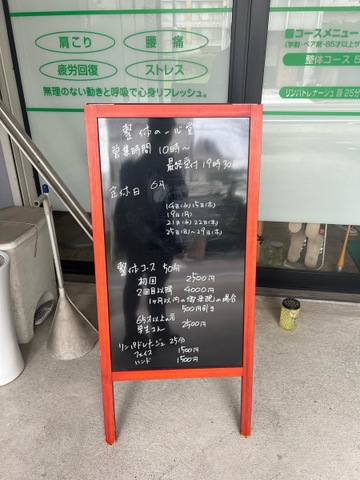 肩こり
腰痛
疲労回復
ストレス
無理のない動きと呼吸で心身リフレッシュ。
■コースメニュー
整体コース 5
リンパドレナージュ 25分
営業時間 10時〜
最終受付 19時30分
定休日 6月
14日(水)15日(木)
19日(月)
21日(水)22日(木)
25日(日)〜29日(木)
整体コース 50分
初回 2500円
2回目以降 4000円
1ヶ月以内の御来院の場合
500円引き
65才以上の方
学生さん 2500円
リンパドレナージュ 25分
フェイス 1500円
ハンド 1500円